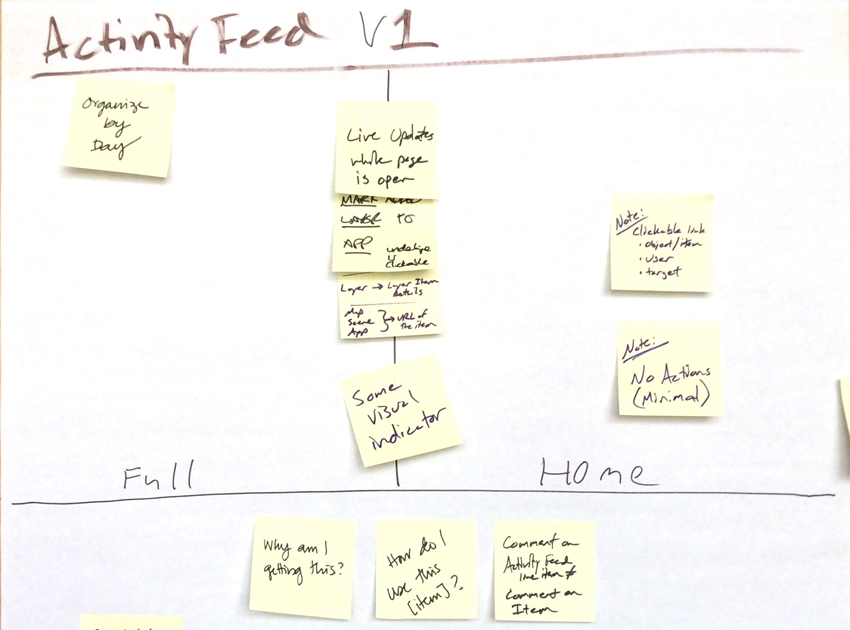 Activity Feed V1
Organize
by
Day
Live Updates
while page
is open
MARK
LAYER TO
APP underline
clickable
Layer → Layer Item
Details
Map
Scene } → URL of
App the item
Some
visual
indicator
Note:
Clickable link
• object/item
• user
• target
Note:
No Actions
(Minimal)
Full
Home
Why am I
getting this?
How do I
use this
[item]?
Comment on
Activity Feed
line item ≠
Comment on
Item